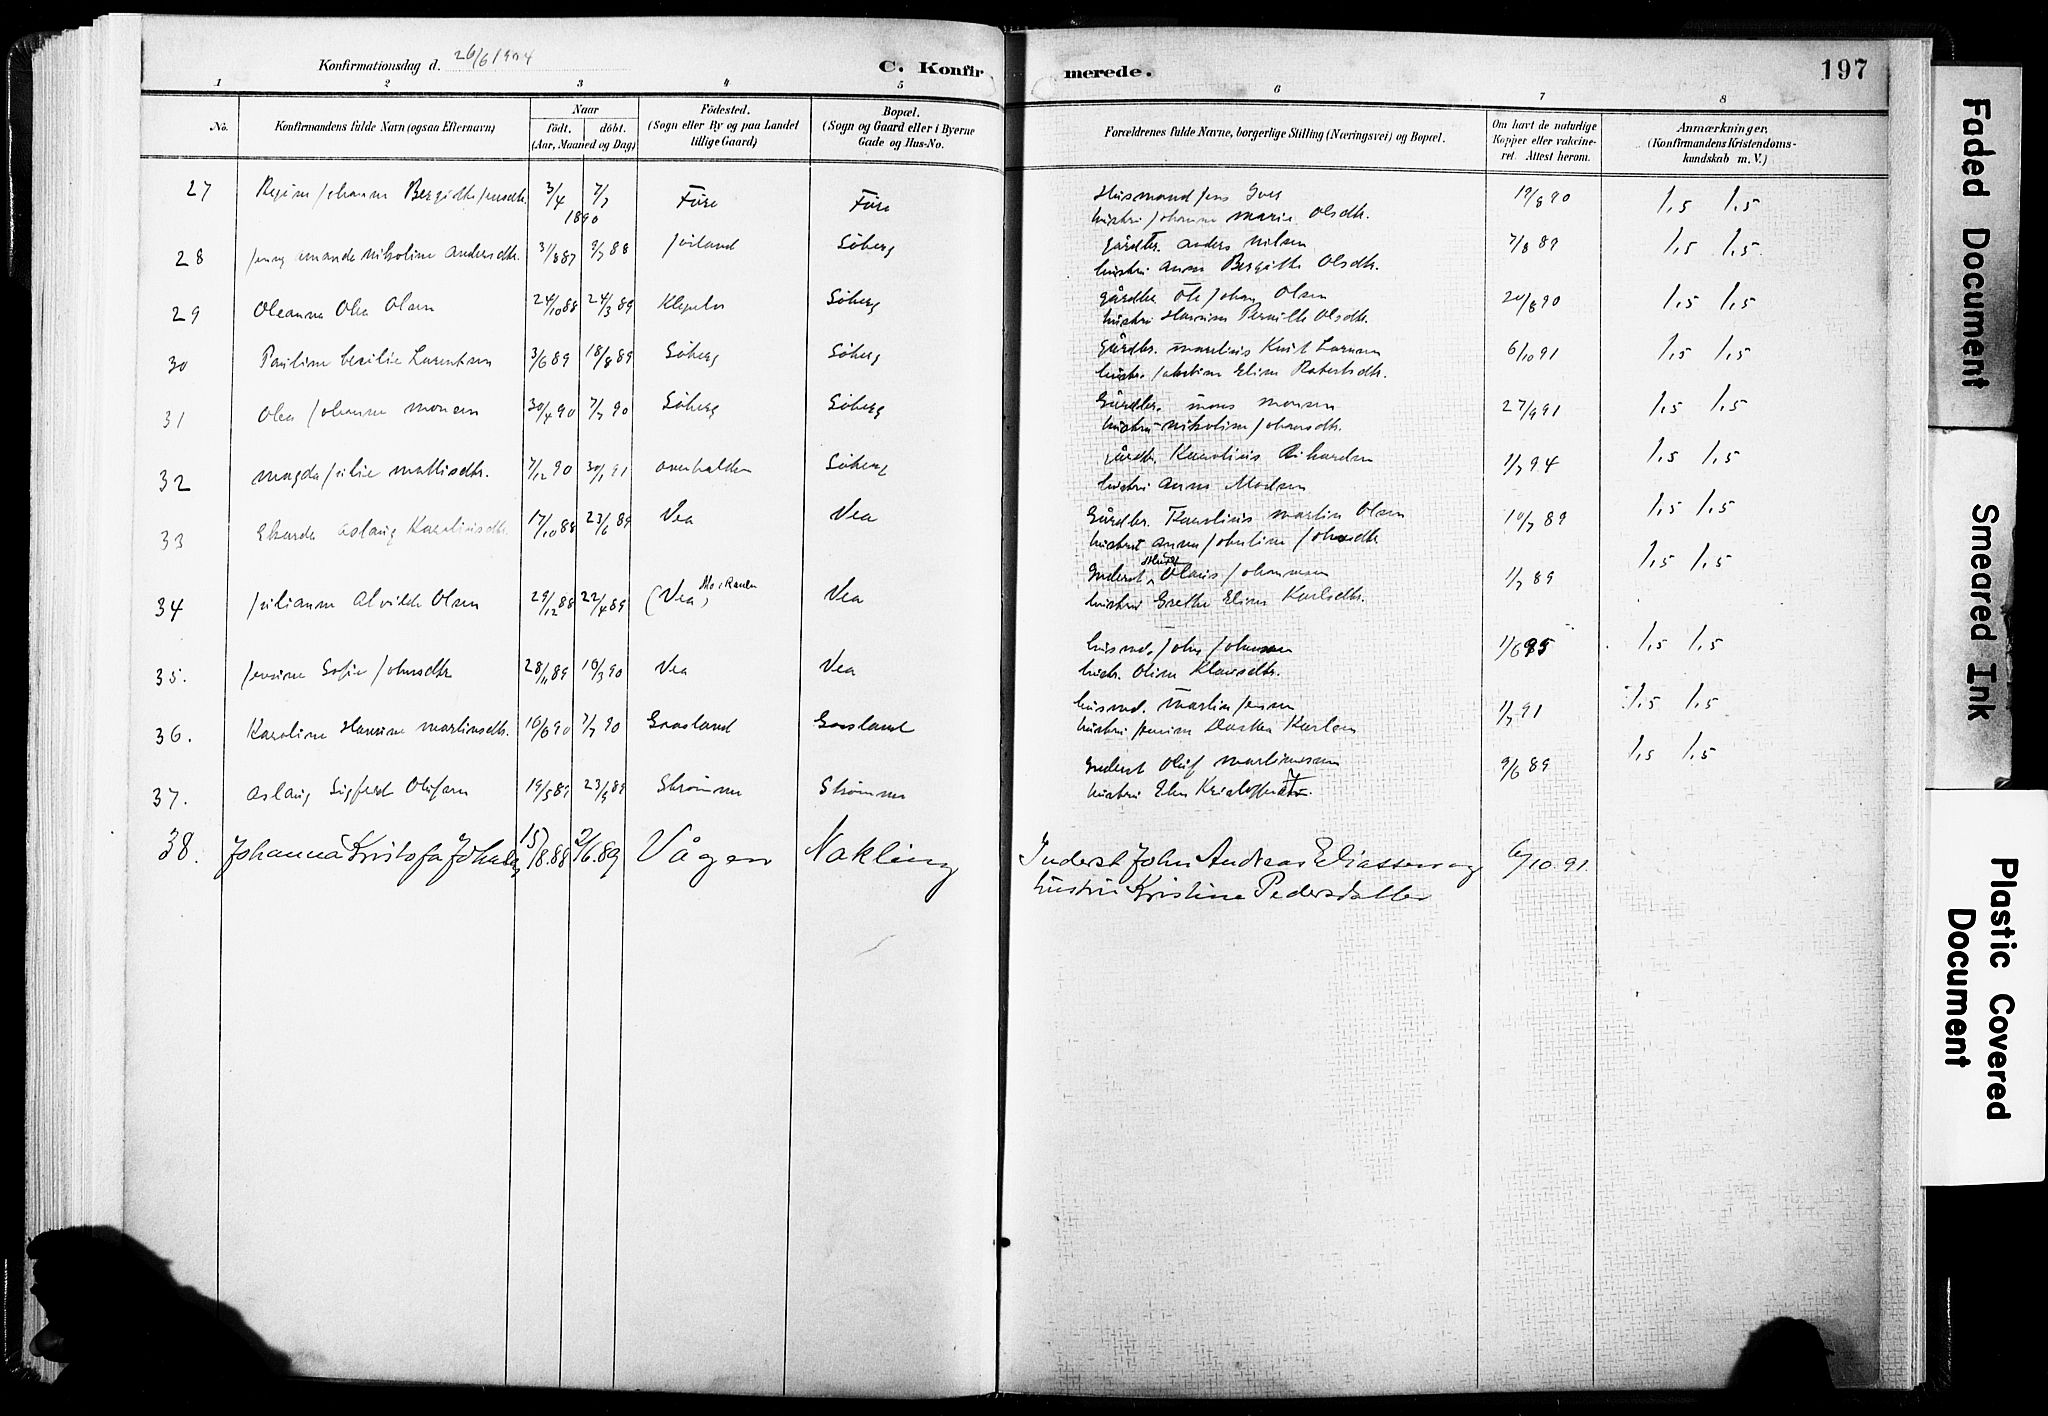 Konfirmationsdag d. 26/6 1904
C. Konfirmerede.
197
1 2 3 4 5 6 7 8
No.
Konfirmandens fulde Navn (ogsaa Efternavn)
Naar
født. døbt.
(Aar, Maaned og Dag)
Födested.
(Sogn eller By og paa Landet
tillige Gaard)
Bopæl.
(Sogn og Gaard eller i Byerne
Gade og Hus-No.
Forældrenes fulde Navne, borgerlige Stilling (Næringsvei) og Bopæl.
Om havt de naturlige
Kopper eller vakcine-
ret. Attest herom.
Anmærkninger.
(Konfirmandens Kristendoms-
kundskab m. V.)
27 Johanne Bergitte Jensdtr. 3/4 7/7 Füre Füre Husmand Jens Iver 19/8 90 1,5 1,5
1890 hustru Johanne Marie Olsdtr.
28 Jenny Amanda Nikoline Andersdtr. 31/8 87 9/7 88 Søberg gårdbr. Anders Nilsen 7/8 89 1,5 1,5
hustru Anne Bergitte Olsdtr.
29 Oleanna Olea Olsen 24/10 88 24/3 89 Søberg gårdbr. Ole Johan Olsen 20/8 90 1,5 1,5
hustru Pernille Olsdtr.
30 Pauline Cecilie Lorentsen 3/6 89 18/8 89 Søberg Søberg gårdbr. 6/10 91 1,5 1,5
hustr. Eline Robertsdtr.
31 Olea Johanne Monsen 30/4 90 7/7 90 Søberg Søberg Gårdbr. Mons Monsen 27/9 91 1,5 1,5
hustru Nikoline Johansdtr.
32 Magda Julie Mathisdtr. 7/12 90 30/1 91 Overhalden Søberg gårdbr. Karolius Rikardsen 1/7 94 1,5 1,5
hustru Anne
33 Aslaug Karoliusdtr. 17/10 88 23/6 89 Vea Vea Gårdbr. Karolius Martin Olsen 10/7 89 1,5 1,5
hustru Anna
34 Julianne Alvilde Olsen 29/12 88 22/4 89 (Vea, Mo i Ranen Vea Inderst Olaus Johannesen 1/7 89 1,5 1,5
hustru Grethe Eline Karlsdtr.
35. Jensine Sofie Johnsdtr 28/11 89 16/3 90 Vea Vea husmd. John Johansen 1/6 95 1,5 1,5
hustr. Oline Klausdtr.
36. Karoline Hansine Martinsdtr. 16/6 90 7/7 90 Grasland Grasland husmd. Martin Jensen 1/7 91 1,5 1,5
hustru Dorthea Karlsen
37. Aslaug Sigfred Olufsen 19/5 89 23/6 89 Strømmen Strømmen Inderst Oluf Martinussen 9/6 89 1,5 1,5
hustru Elen
38. Johanna Kristofa 15/8.88 2/6.89 Vågen Nakling Inderst John Andreas Eliassen og 6/10.91.
hustru Kristine Pedersdatter
Faded Document
Smeared Ink
Plastic Covered
Document